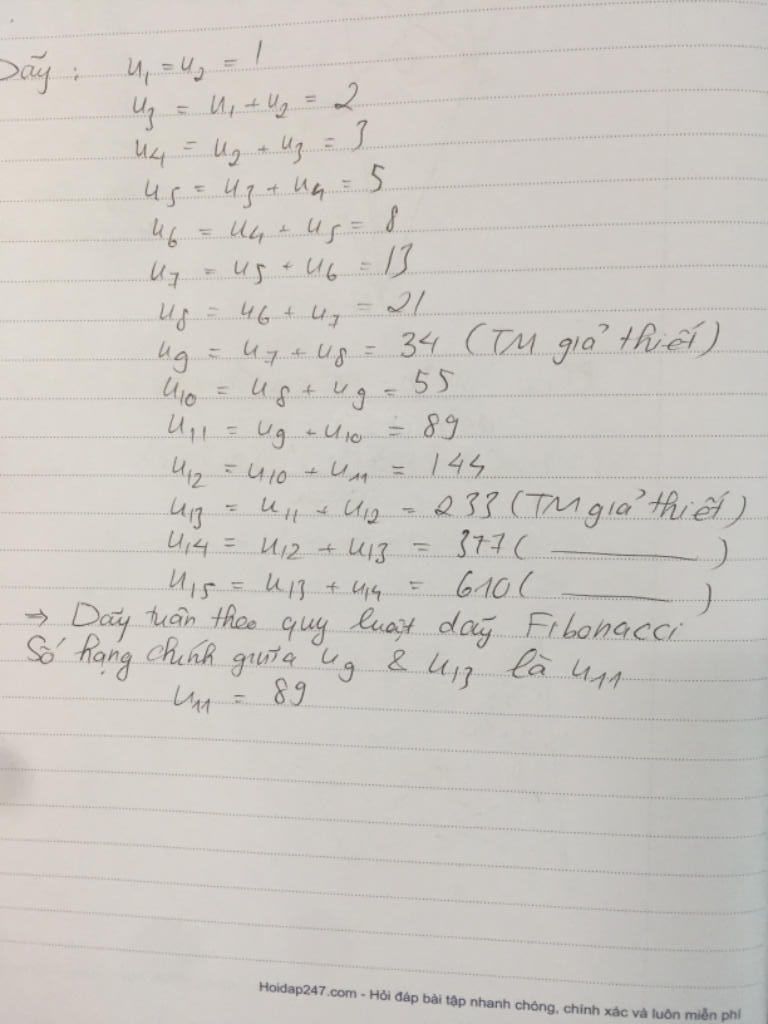 Dãy : u₁ = u₂ = 1
u₃ = u₁ + u₂ = 2
u₄ = u₂ + u₃ = 3
u₅ = u₃ + u₄ = 5
u₆ = u₄ + u₅ = 8
u₇ = u₅ + u₆ = 13
u₈ = u₆ + u₇ = 21
u₉ = u₇ + u₈ = 34 (TM giả thiết)
u₁₀ = u₈ + u₉ = 55
u₁₁ = u₉ + u₁₀ = 89
u₁₂ = u₁₀ + u₁₁ = 144
u₁₃ = u₁₁ + u₁₂ = 233 (TM giả thiết)
u₁₄ = u₁₂ + u₁₃ = 377 (———)
u₁₅ = u₁₃ + u₁₄ = 610 (———)
⇒ Dãy tuân theo quy luật dãy Fibonacci
Số hạng chính giữa u₉ & u₁₃ là u₁₁
u₁₁ = 89
Hoidap247.com - Hỏi đáp bài tập nhanh chóng, chính xác và luôn miễn phí